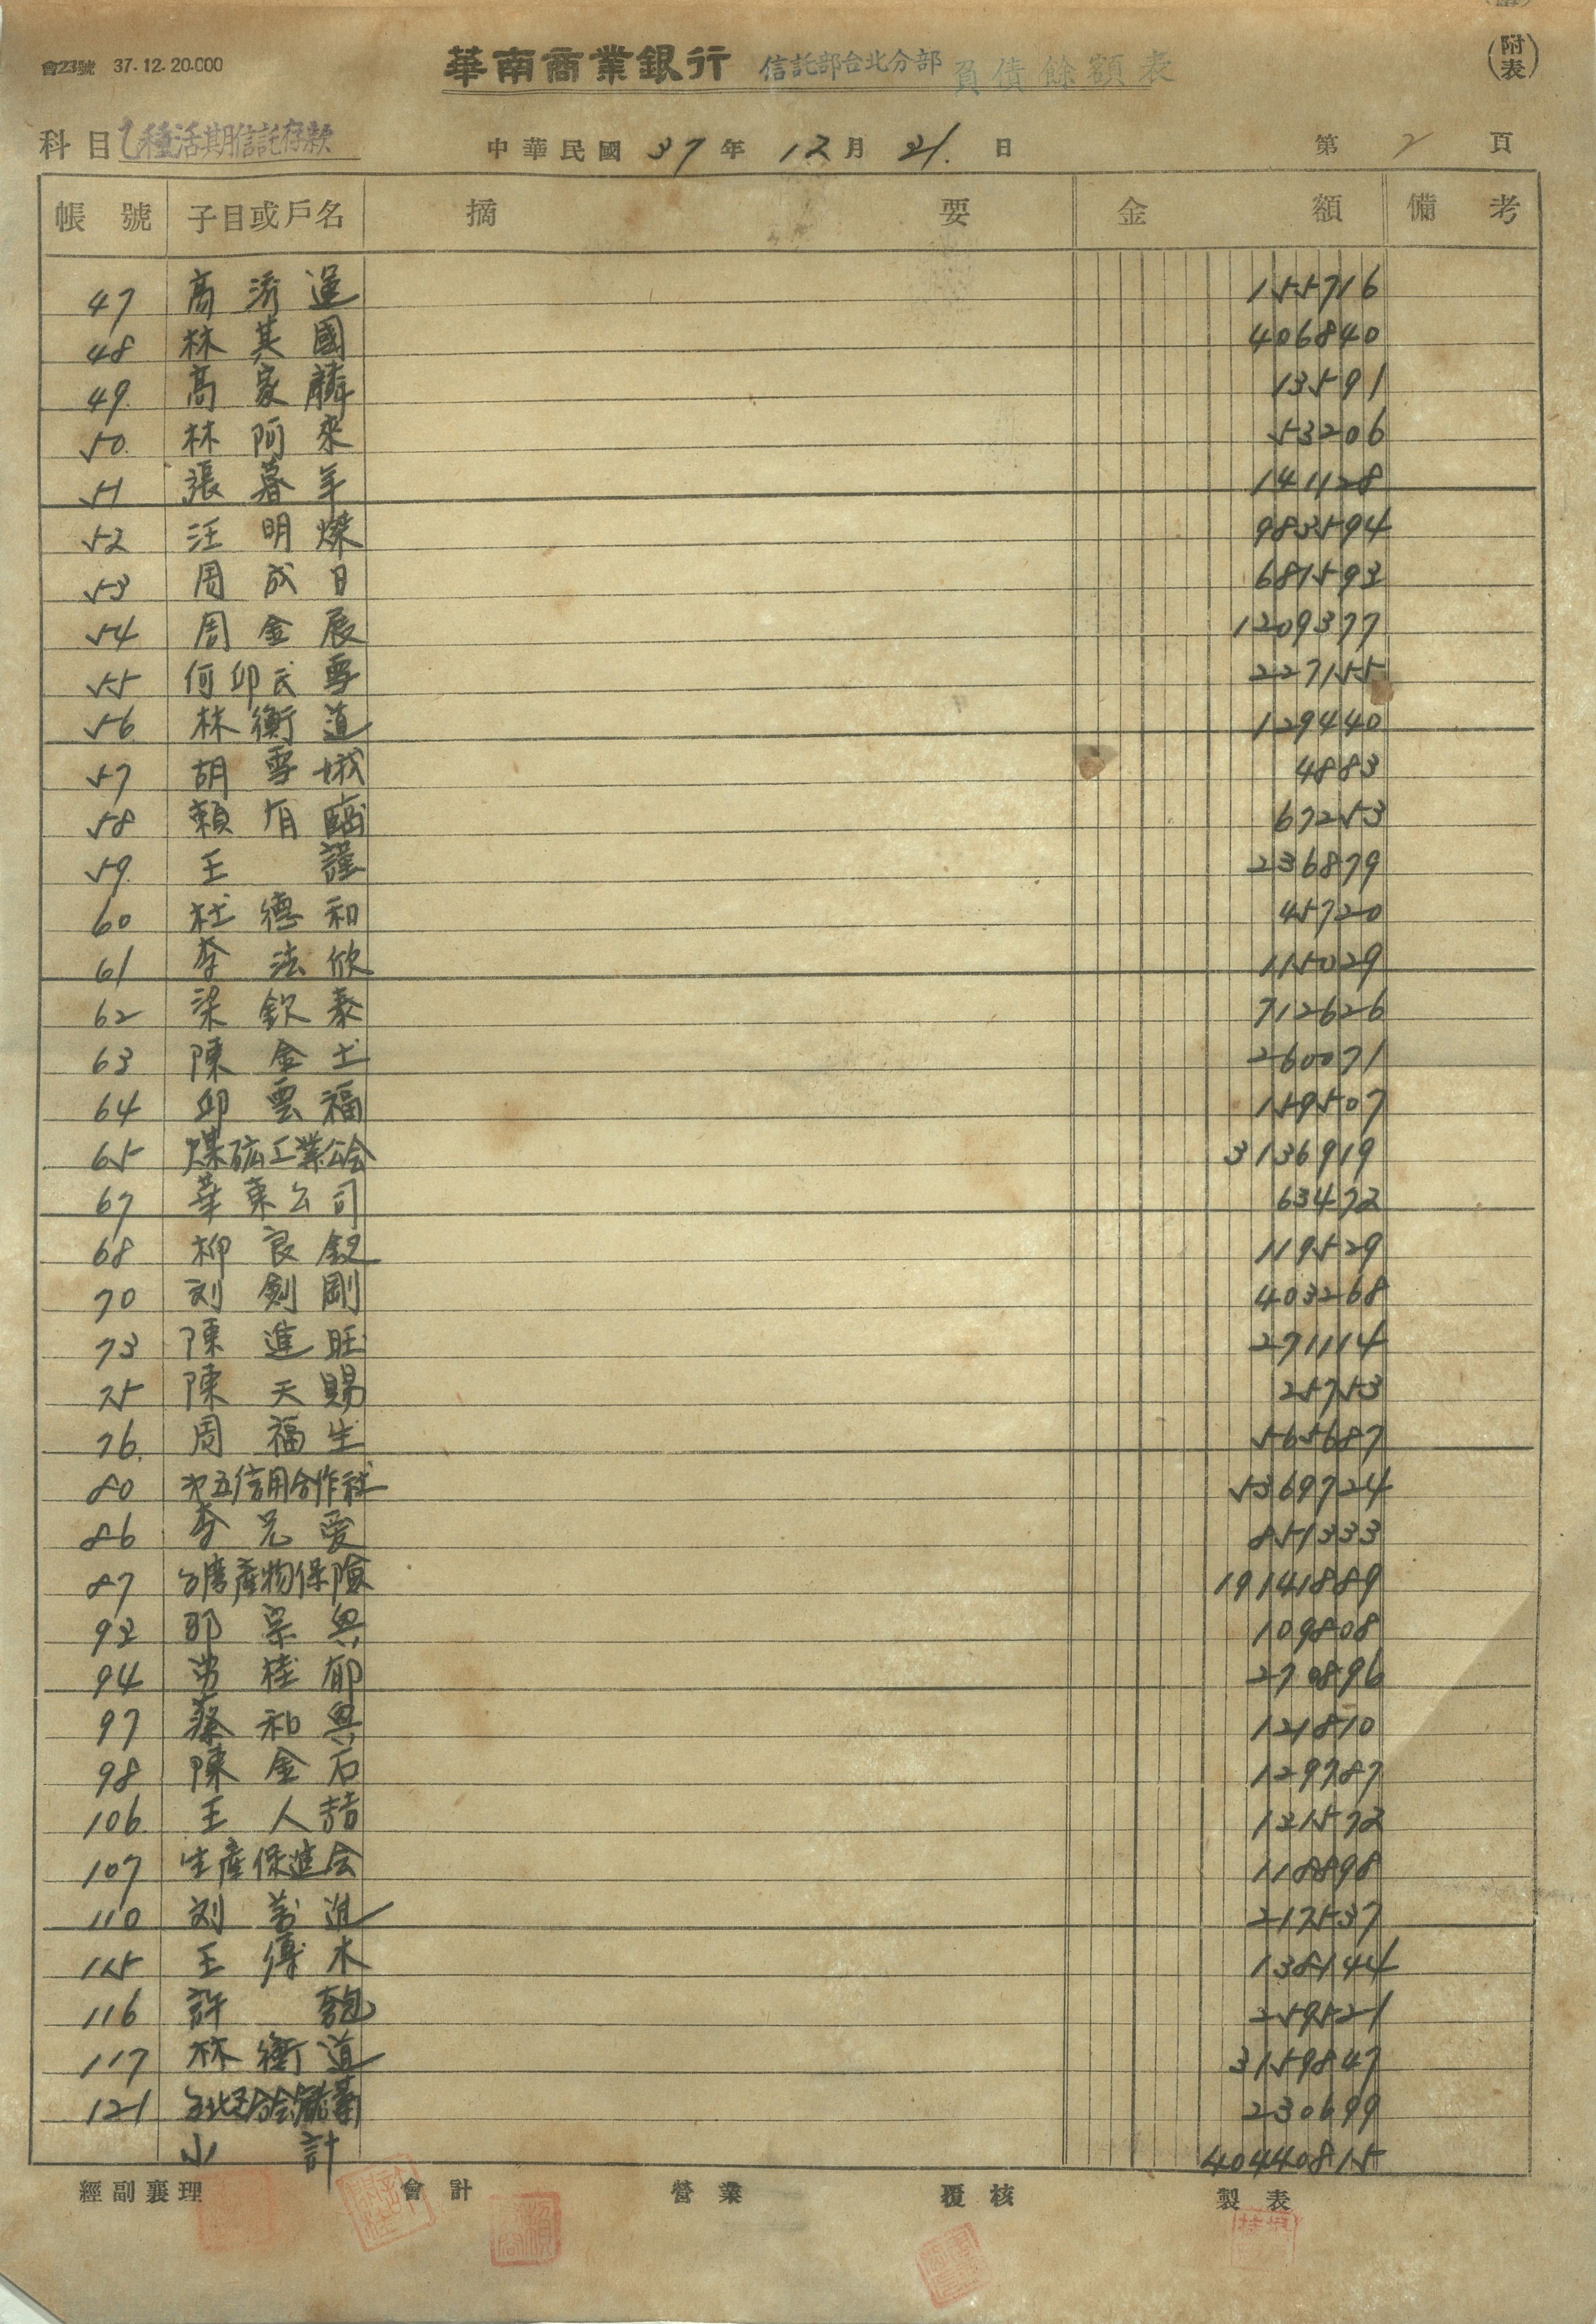 會23號 37.12.20.000
華南商業銀行 信託部台北分部 負債餘額表
(附表)
科目 乙種活期信託存款 中華民國 37 年 12 月 21. 日 第 2 頁
帳號 子目或戶名 摘要 金額 備考
47 高添運 155716
48 林其國 406840
49. 高家麟 13591
50. 林阿來 53206
51 張暮年 141128
52 汪明燦 983594
53 周成日 687593
54 周金展 1209377
55 何邱氏雪 227155
56 林衡道 129440
57 胡雪娥 4883
58 賴有臨 67253
59. 王謹 236879
60 杜德和 45720
61 李法欣 115029
62 梁欽泰 712626
63 陳金土 260071
64 邱雲福 159507
65 煤砿工業公会 3136919
67 華東公司 63472
68 柳良 119529
70 刘劍剛 403268
73 陳進旺 271114
75 陳天賜 25753
76. 周福生 565687
80 五信用合作社 5369724
86 李兄愛 851333
87 產物保險 19141889
92 宗興 109808
94 桂郁 270896
97 蔡和興 121810
98 陳金石 129787
106 王人喆 121572
107 生產保進会 118898
110 刘進 217537
115 王傳木 138144
116 許 259521
117 林衡道 3159847
121 230699
小計 40440815
經副襄理 會計 營業 覆核 製表